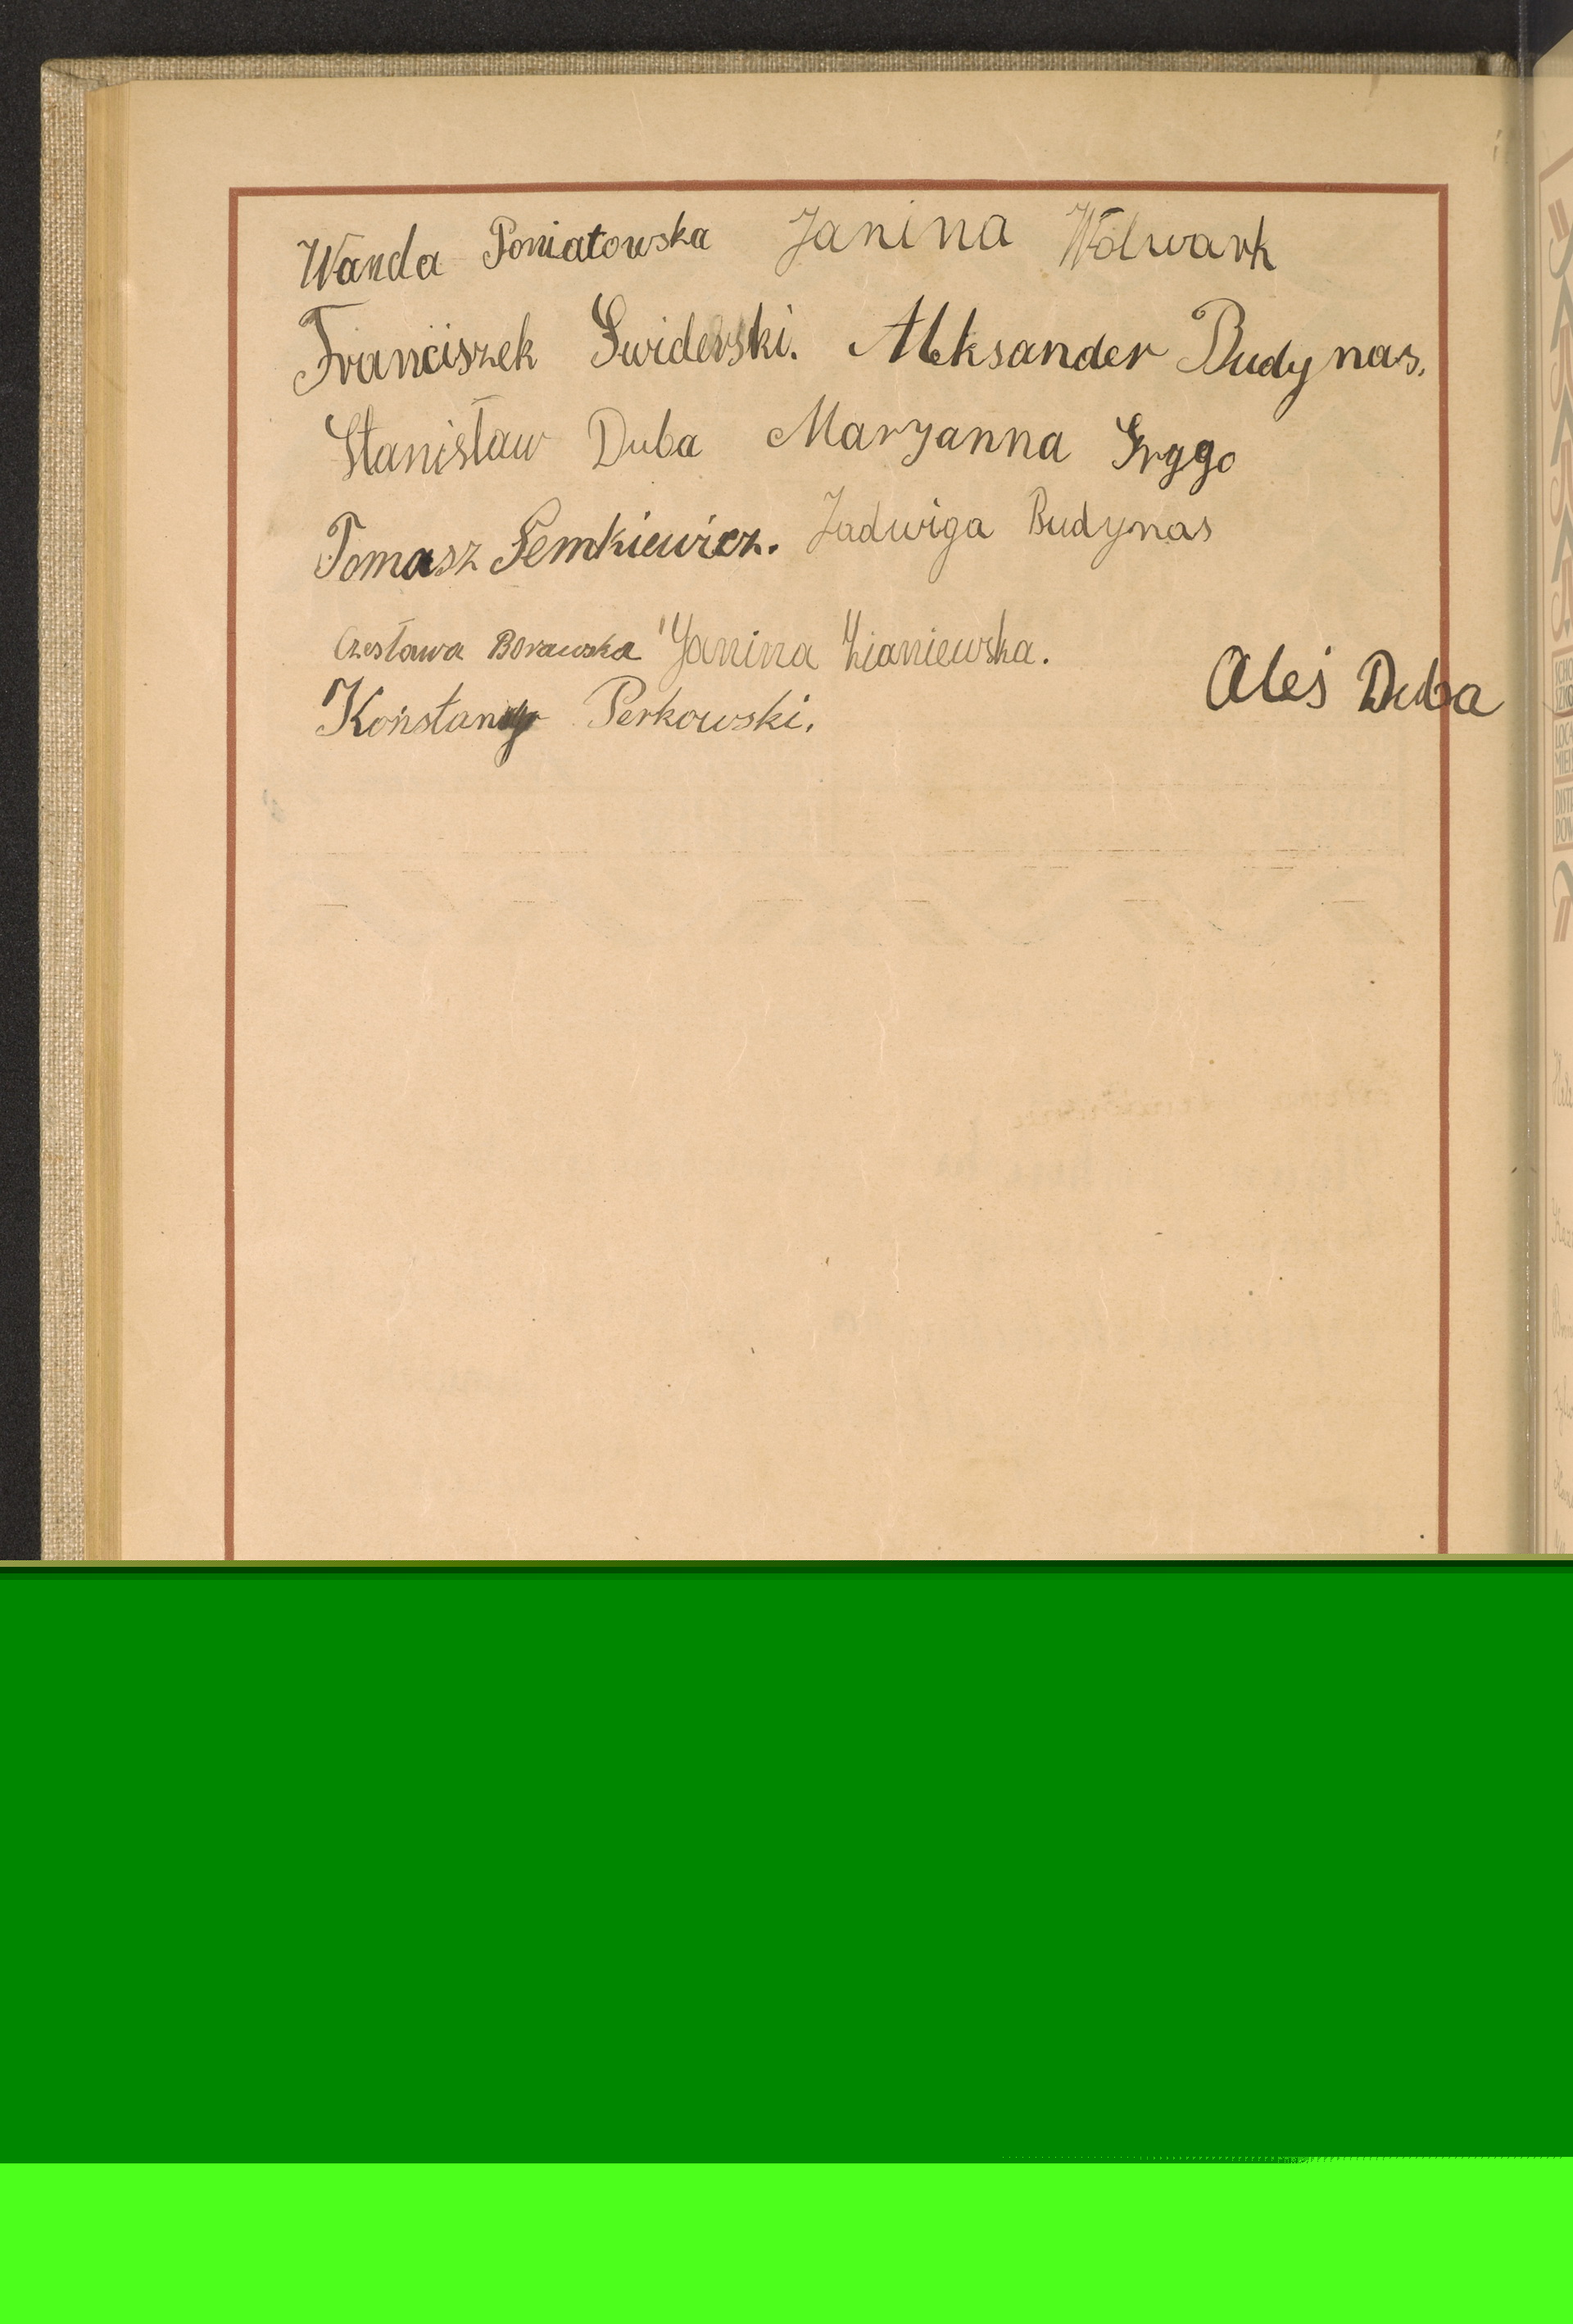 Wanda Poniatowska Janina Wólwark
Franciszek Swiderski. Aleksander Budynas.
Stanisław Duba Maryanna Grygo
Tomasz Semkiewicz. Jadwiga Budynas
Czesława Borawska Janina
Konstanty Perkowski.
Aleś Duba